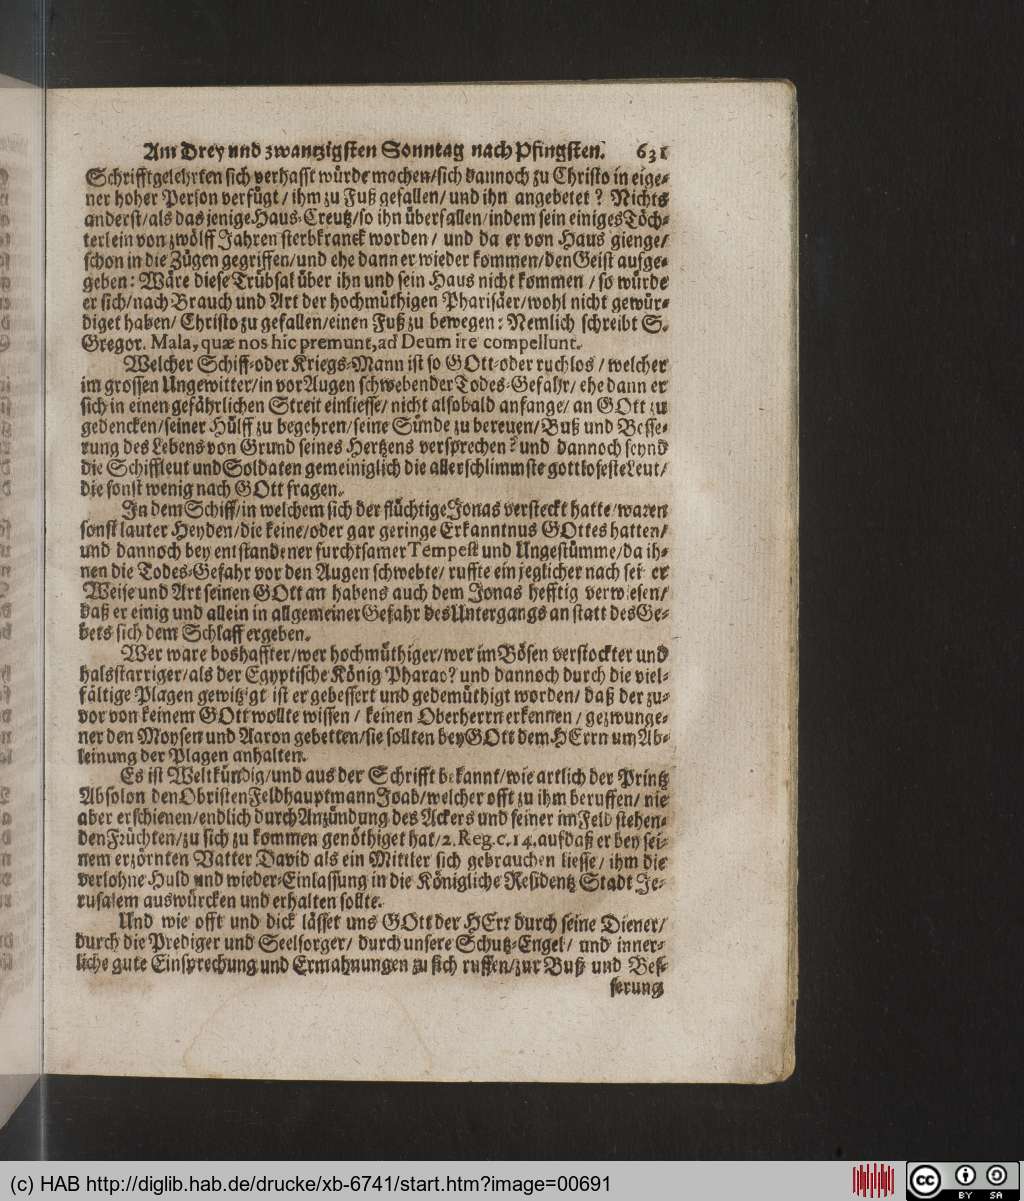 Am Drey und zwantzigsten Sonntag nach Pfingsten. 631
Schrifftgelehrten sich verhasst würde machen/sich dannoch zu Christo in eige-
ner hoher Person verfügt / ihm zu Fuß gefallen / und ihn angebetet? Nichts
anderst/als das jenige Haus-Creutz/so ihn überfallen/indem sein einiges Töch-
terlein von zwölff Jahren sterbkranck worden / und da er von Haus gienge/
schon in die Zügen gegriffen/und ehe dann er wieder kommen/den Geist aufge-
geben: Wäre diese Trübsal über ihn und sein Haus nicht kommen / so würde
er sich/nach Brauch und Art der hochmüthigen Pharisäer/wohl nicht gewür-
diget haben/ Christo zu gefallen/einen Fuß zu bewegen: Nemlich schreibt S.
Gregor. Mala, quæ nos hic premunt, ad Deum ire compellunt.
Welcher Schiff-oder Kriegs-Mann ist so GOtt-oder ruchlos / welcher
im grossen Ungewitter/in vor Augen schwebender Todes-Gefahr/ ehe dann er
sich in einen gefährlichen Streit einliesse/ nicht alsobald anfange/ an GOtt zu
gedencken/seiner Hülff zu begehren/seine Sünde zu bereuen/Buß und Besse-
rung des Lebens von Grund seines Hertzens versprechen? und dannoch seynd
die Schiffleut und Soldaten gemeiniglich die allerschlimmste gottloseste Leut/
die sonst wenig nach GOtt fragen.
In dem Schiff/in welchem sich der flüchtige Jonas versteckt hatte/waren
sonst lauter Heyden/die keine/oder gar geringe Erkanntnus GOttes hatten/
und dannoch bey entstandener furchtsamer Tempest und Ungestümme/da ih-
nen die Todes-Gefahr vor den Augen schwebte/ ruffte ein jeglicher nach sei er
Weise und Art seinen GOtt an habens auch dem Jonas hefftig verwiesen/
daß er einig und allein in allgemeiner Gefahr des Untergangs an statt des Ge-
bets sich dem Schlaff ergeben.
Wer ware boshaffter/wer hochmüthiger/wer im Bösen verstockter und
halsstarriger/als der Egyptische König Pharao? und dannoch durch die viel-
fältige Plagen gewitzigt ist er gebessert und gedemüthigt worden/ daß der zu-
vor von keinem GOtt wollte wissen / keinen Oberherrn erkennen / gezwunge-
ner den Moysen und Aaron gebetten/sie sollten bey GOtt dem HErrn um Ab-
leinung der Plagen anhalten.
Es ist Weltkündig/und aus der Schrifft bekannt/wie artlich der Printz
Absolon den Obristen Feldhauptmann Joab/welcher offt zu ihm beruffen/ nie
aber erschienen/endlich durch Anzündung des Ackers und seiner im Feld stehen-
den Früchten/zu sich zu kommen genöthiget hat/2. Reg. c. 14. aufdaß er bey sei-
nem erzörnten Vatter David als ein Mittler sich gebrauchen liesse/ ihm die
verlohne Huld und wieder-Einlassung in die Königliche Residentz Stadt Je-
rusalem auswürcken und erhalten sollte.
Und wie offt und dick lässet uns GOtt der HErr durch seine Diener/
durch die Prediger und Seelsorger/ durch unsere Schutz-Engel/ und inner-
liche gute Einsprechung und Ermahnungen zu sich ruffen/zur Buß und Bes-
serung
(c) HAB http://diglib.hab.de/drucke/xb-6741/start.htm?image=00691
cc BY SA